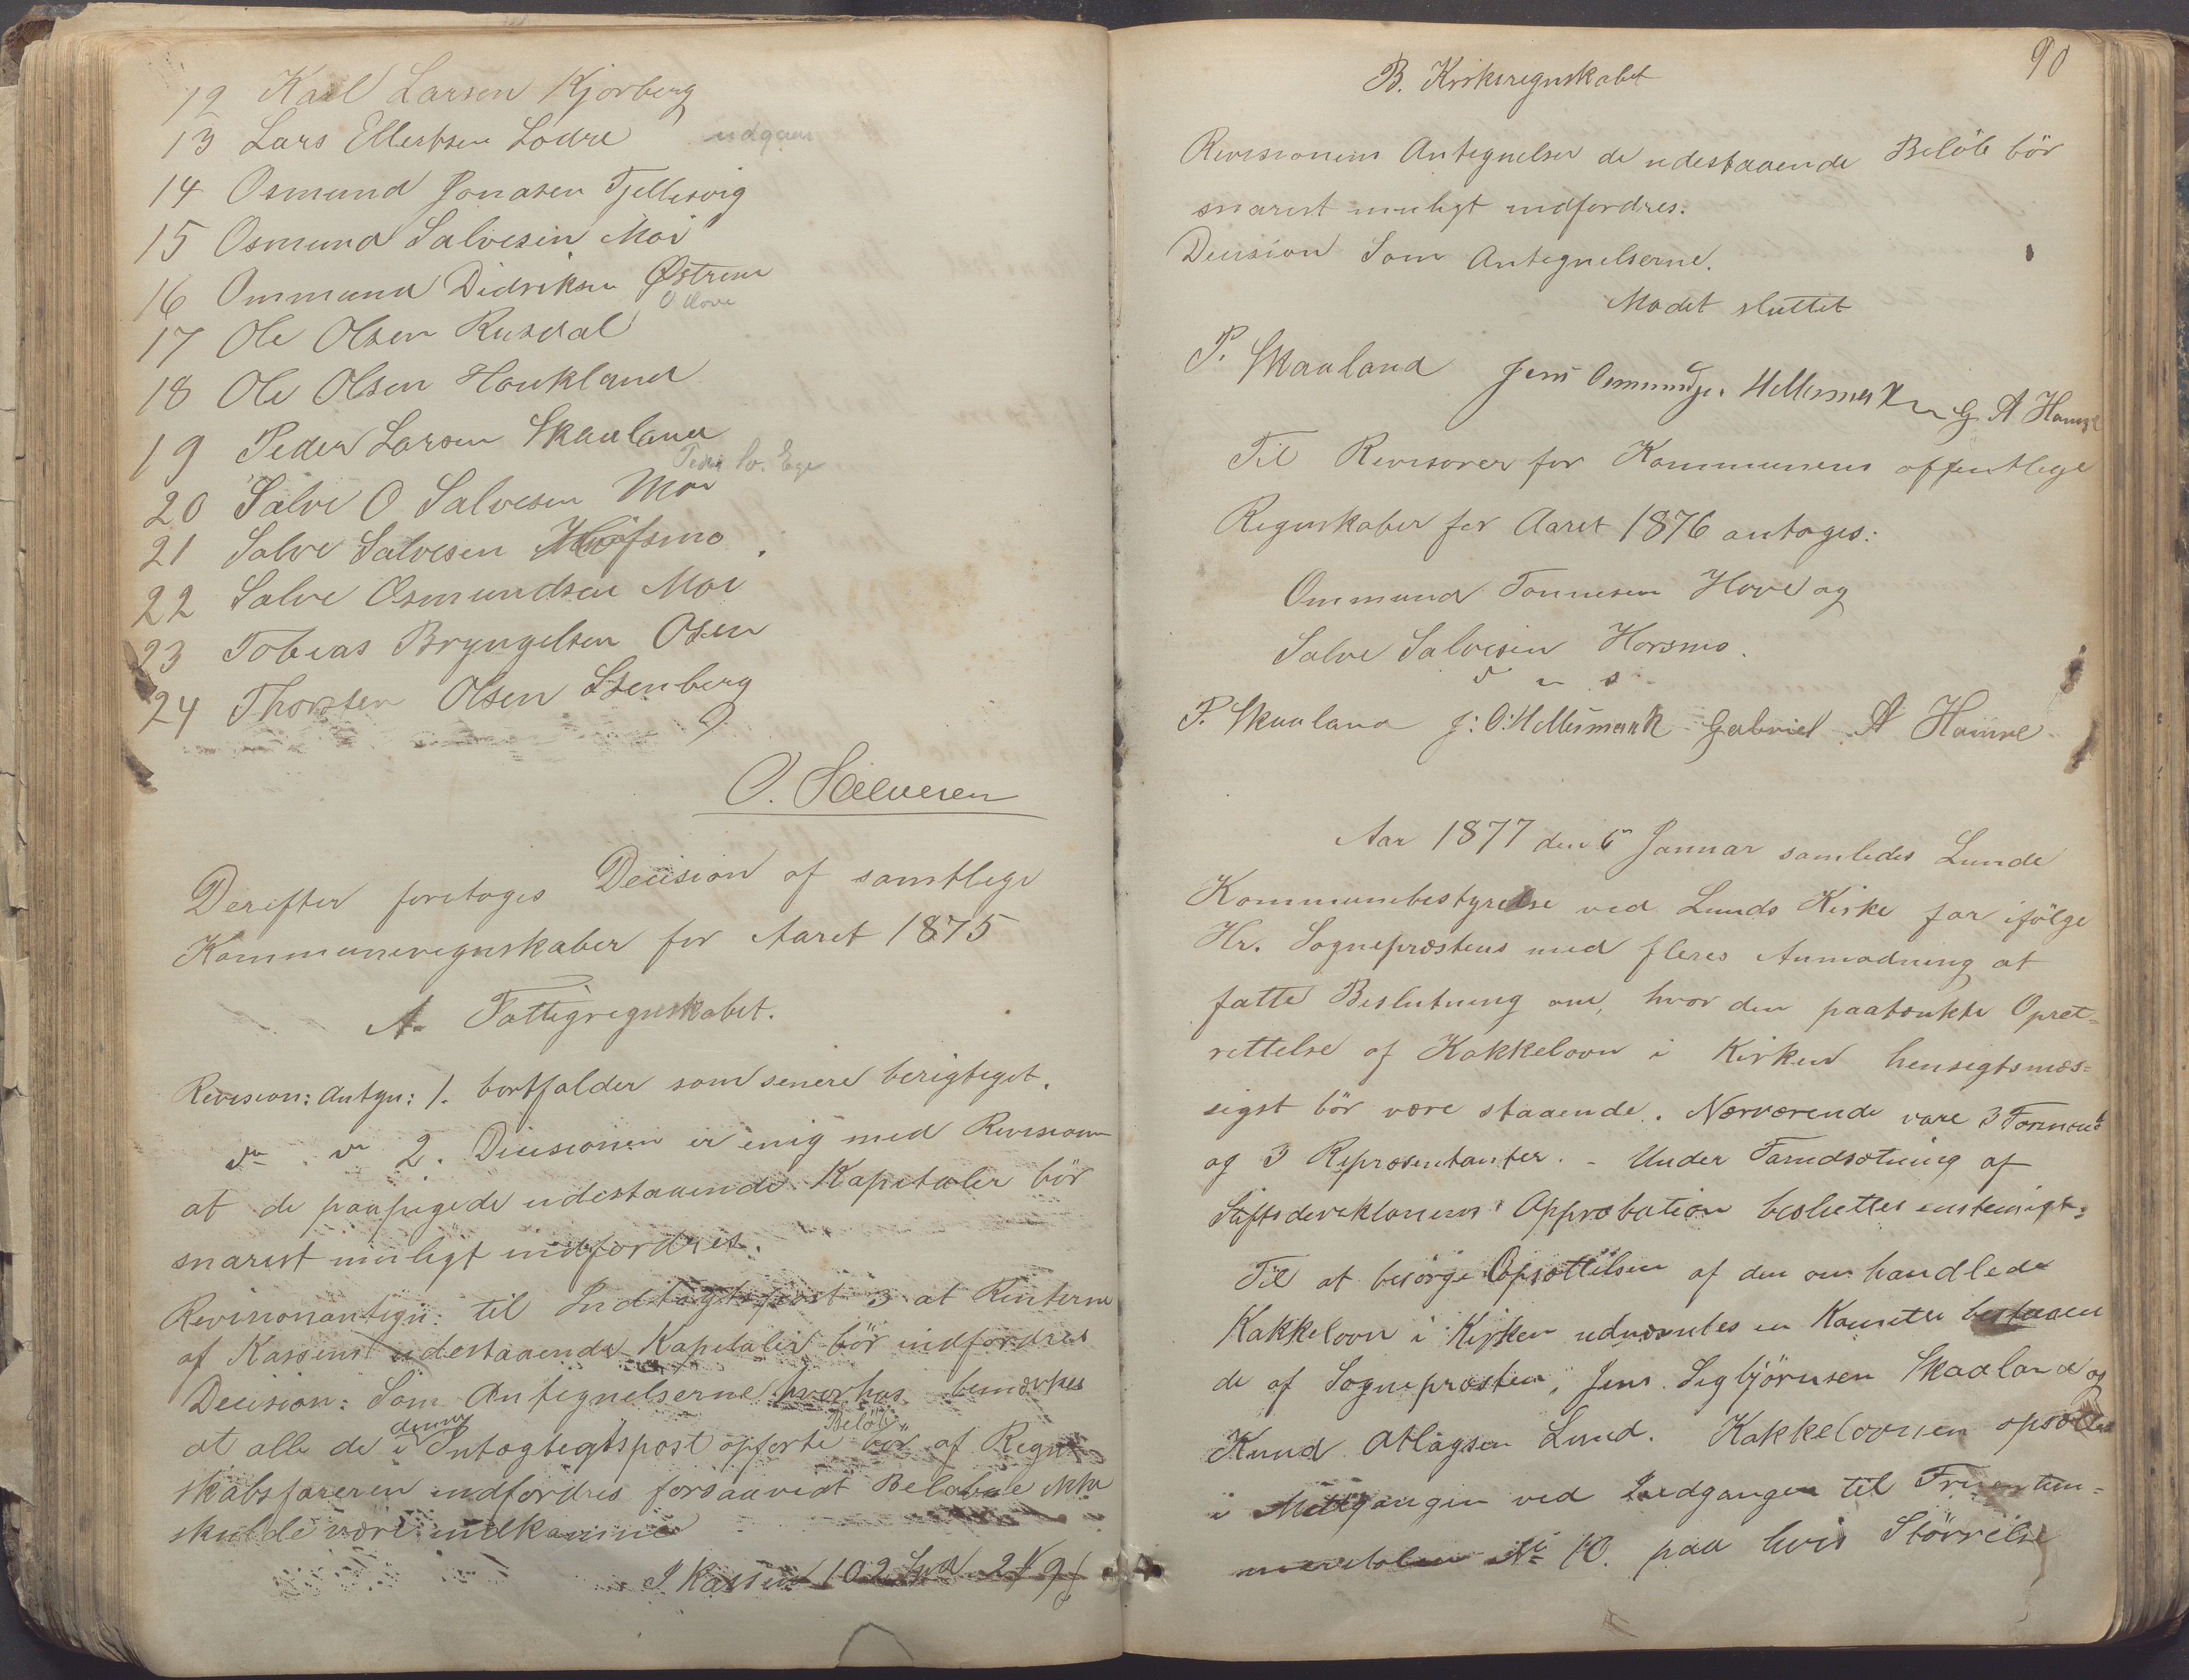 12 Karl Larsen Kjørberg
13 Lars Ellertsen Lodre udgaar
14 Osmund Jonasen Tjellesvig
15 Osmund Salvesen Moi
16 Ommund Didriksen Østrem
O Hove
17 Ole Olsen Rusdal
18 Ole Olsen Haukland
19 Peder Larsen Skaaland
Peder Ege
20 Salve O Salvesen Moi
21 Salve Salvesen Horsmo
22 Salve Osmundsen Moi
23 Tobias Bryngelsen Osen
24 Thorsten Olsen Stenberg
O. Salvesen
Derefter foretages Decision af samtlige
Kommuneregnskaber for Aaret 1875
A. Fattigregnskabet.
Revision: Antgn: 1. bortfalder som senere berigtiget.
do do 2. Decisionen er enig med Revisionen
at de paapegede udestaaende Kapitaler bør
snarest muligt indfordres.
Revisionantegn: til Indtægtspost 3 at Renterne
af Kassens udestaaende Kapitaler bør indfordres
Decision: Som Antegnelserne hvorhos bemærkes
denne Beløb
at alle de i Intægtegtspost opførte bør af Regn-
skabsføreren indfordres forsaavidt Beløbene ikke
skulde være indkomne
I Kassen 102 Spd 2 9
90
B. Kirkeregnskabet
Revisionens Antegnelser de udestaaende Beløb bör
snarest muligt indfordres.
Decision Som Antegnelserne.
Mødet sluttet
P. Skaaland Jens Osmundsen Hellesmark G A Hamre
Til Revisorer for Kommunens offentlige
Regnskaber for Aaret 1876 antages:
Ommund Tønnesen Hove og
Salve Salvesen Horsmo.
P. Skaaland J: O: Hellesmark Gabriel A Hamre
Aar 1877 den 6n Januar samledes Lunde
Kommunebestyrelse ved Lunds Kirke for ifölge
Hr. Sogneprestens med fleres Anmodning at
fatte Beslutning om, hvor den paatænkte Opret-
rettelse af Kakkelovn i Kirken hensigtsmæs-
sigst bör være staaende. Nærværende vare 3 Formænd
og 3 Repræsentanter. - Under Forudsætning af
Stiftsdirektionens Approbation besluttes enstemigt:
Til at besörge Opsættelsen af den omhandlede
Kakkelovn i Kirken udnævntes en Komite bestaaen
de af Sognepresten, Jens Sigbjörnsen Skaaland og
Knud Atlagsen Lund. Kakkelovnen opsættes
i Midtgangen ved Indgangen til Fruentim-
merstolen No 10. paa hvis Störrelse